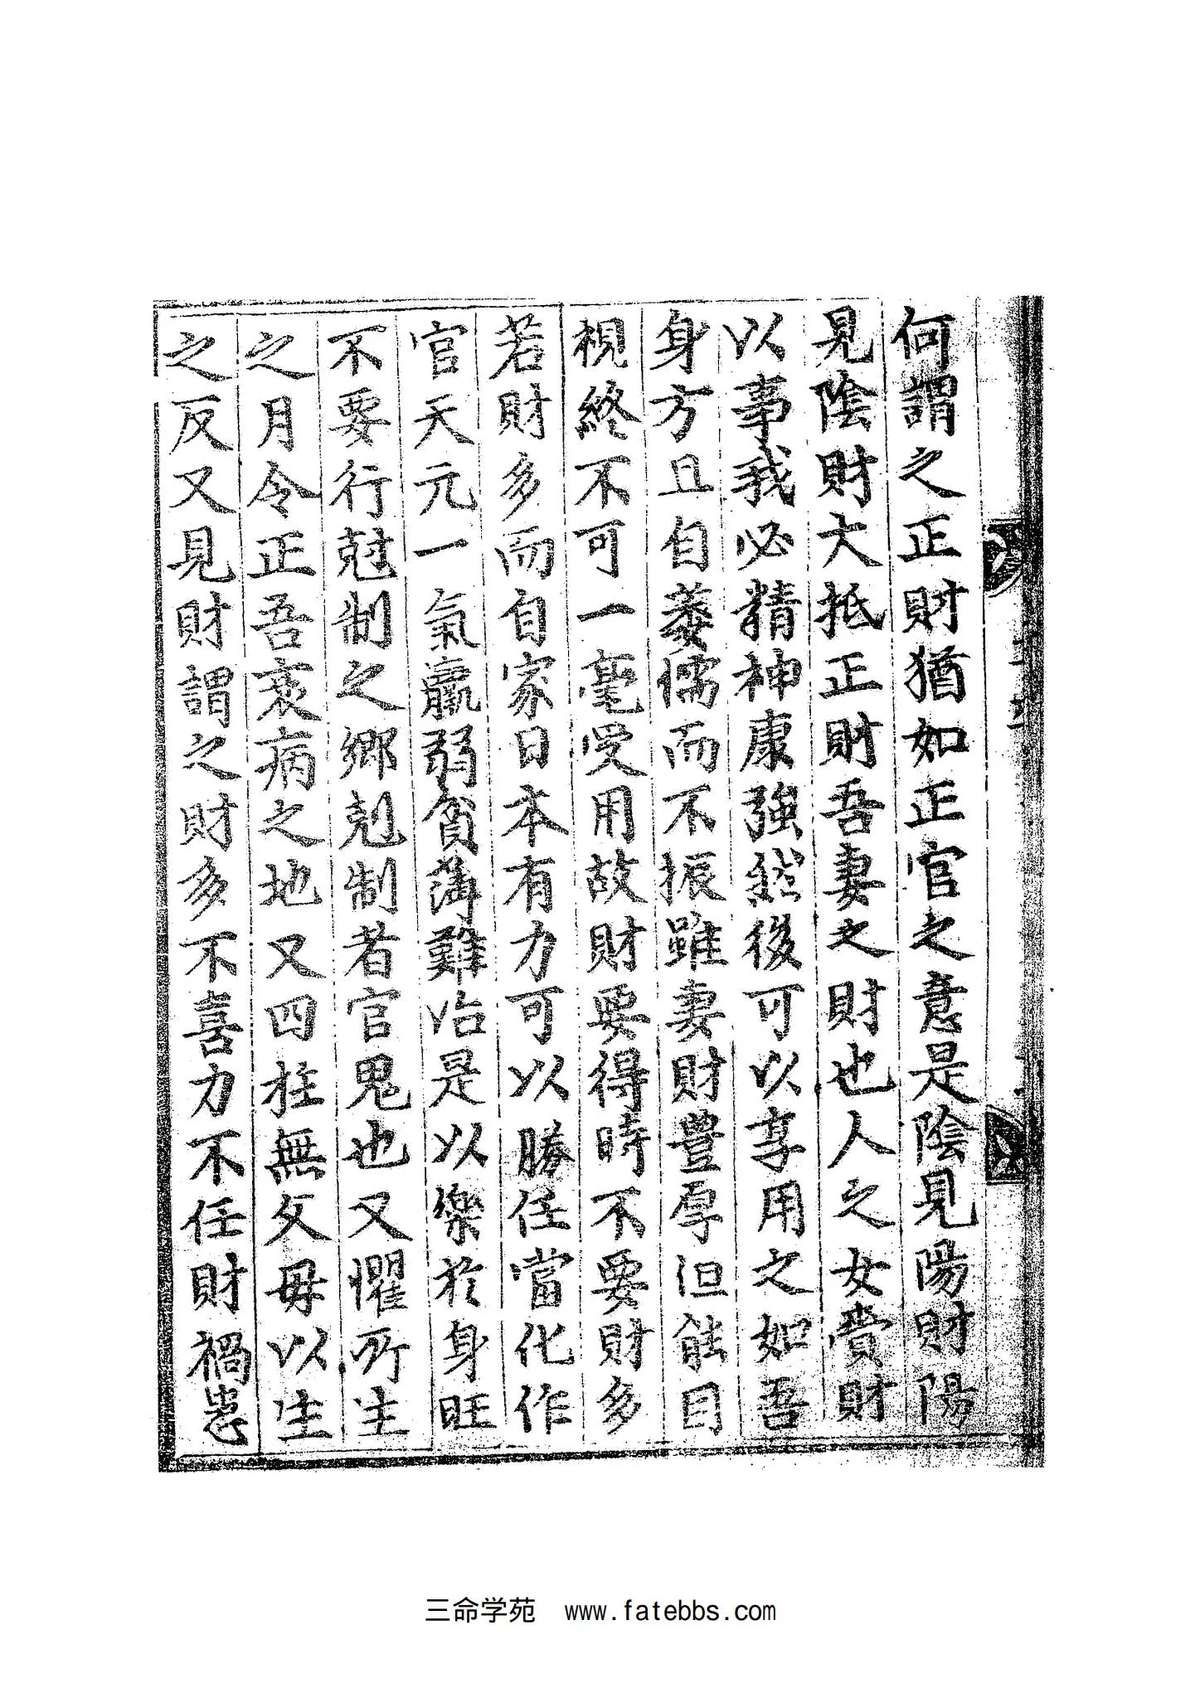 何謂之正財猶如正官之意是陰見陽財陽
見陰財大抵正財吾妻之財也人之女賫財
以事我必精神康強然後可以享用之如吾
身方且自萎懦而不振雖妻財豊厚但能目
視終不可一毫受用故財要得時不要財多
若財多而自家日本有力可以勝任當化作
官天元一氣羸弱貧薄難治是以樂於身旺
不要行尅制之鄉剋制者官鬼也又懼所生
之月令正吾衰病之地又四柱無父母以生
之反又見財謂之財多不喜力不任財禍患
三命学苑 www.fatebbs.com